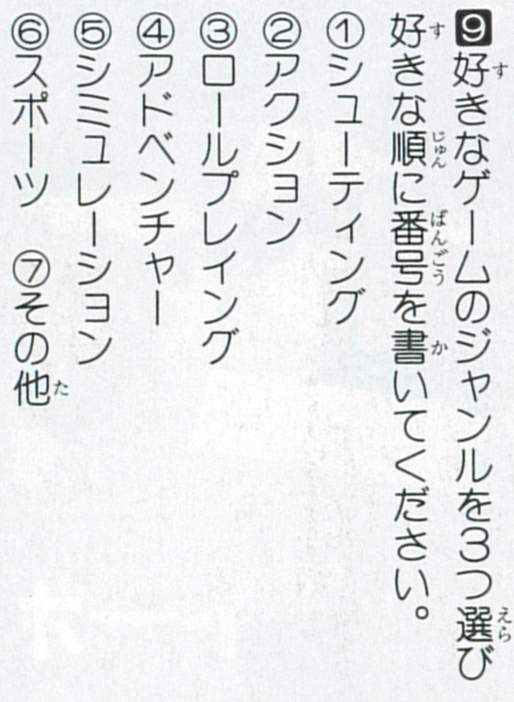 9 好きなゲームのジャンルを3つ選び
好きな順に番号を書いてください。
①シューティング
②アクション
③ロールプレイング
④アドベンチャー
⑤シミュレーション
⑥スポーツ ⑦その他